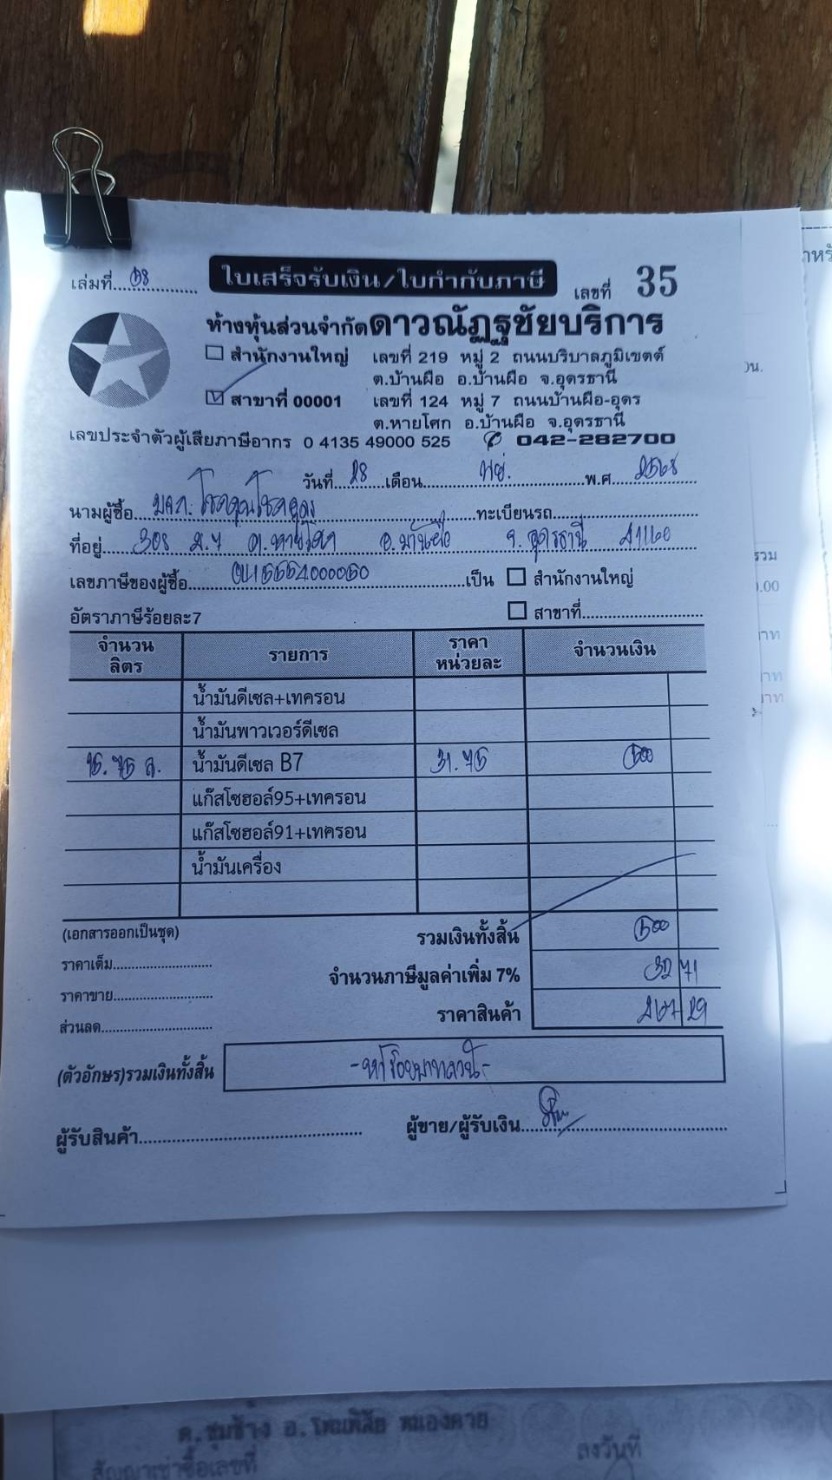 เล่มที่ 58 ใบเสร็จรับเงิน/ใบกำกับภาษี เลขที่ 35
ห้างหุ้นส่วนจำกัดดาวณัฏฐชัยบริการ
สำนักงานใหญ่ เลขที่ 219 หมู่ 2 ถนนบริบาลภูมิเขตต์
ต.บ้านผือ อ.บ้านผือ จ.อุดรธานี
สาขาที่ 00001 เลขที่ 124 หมู่ 7 ถนนบ้านผือ-อุดร
ต.หายโศก อ.บ้านผือ จ.อุดรธานี
เลขประจำตัวผู้เสียภาษีอากร 0 4135 49000 525 042-282700
วันที่ 28 เดือน พย. พ.ศ. 2568
นามผู้ซื้อ ทะเบียนรถ
ที่อยู่ 308 ม.7 ต.หายโศก อ.บ้านผือ จ.อุดรธานี 41160
เลขภาษีของผู้ซื้อ เป็น สำนักงานใหญ่
อัตราภาษีร้อยละ7 สาขาที่
จำนวนลิตร รายการ ราคาหน่วยละ จำนวนเงิน
น้ำมันดีเซล+เทครอน
น้ำมันพาวเวอร์ดีเซล
15.75 ล. น้ำมันดีเซล B7 31.75 500
แก๊สโซฮอล์95+เทครอน
แก๊สโซฮอล์91+เทครอน
น้ำมันเครื่อง
(เอกสารออกเป็นชุด) รวมเงินทั้งสิ้น 500
ราคาเต็ม
จำนวนภาษีมูลค่าเพิ่ม 7% 32 71
ราคาขาย
ราคาสินค้า 467 29
ส่วนลด
(ตัวอักษร)รวมเงินทั้งสิ้น -ห้าร้อยบาทถ้วน-
ผู้รับสินค้า ผู้ขาย/ผู้รับเงิน
ลงวันที่